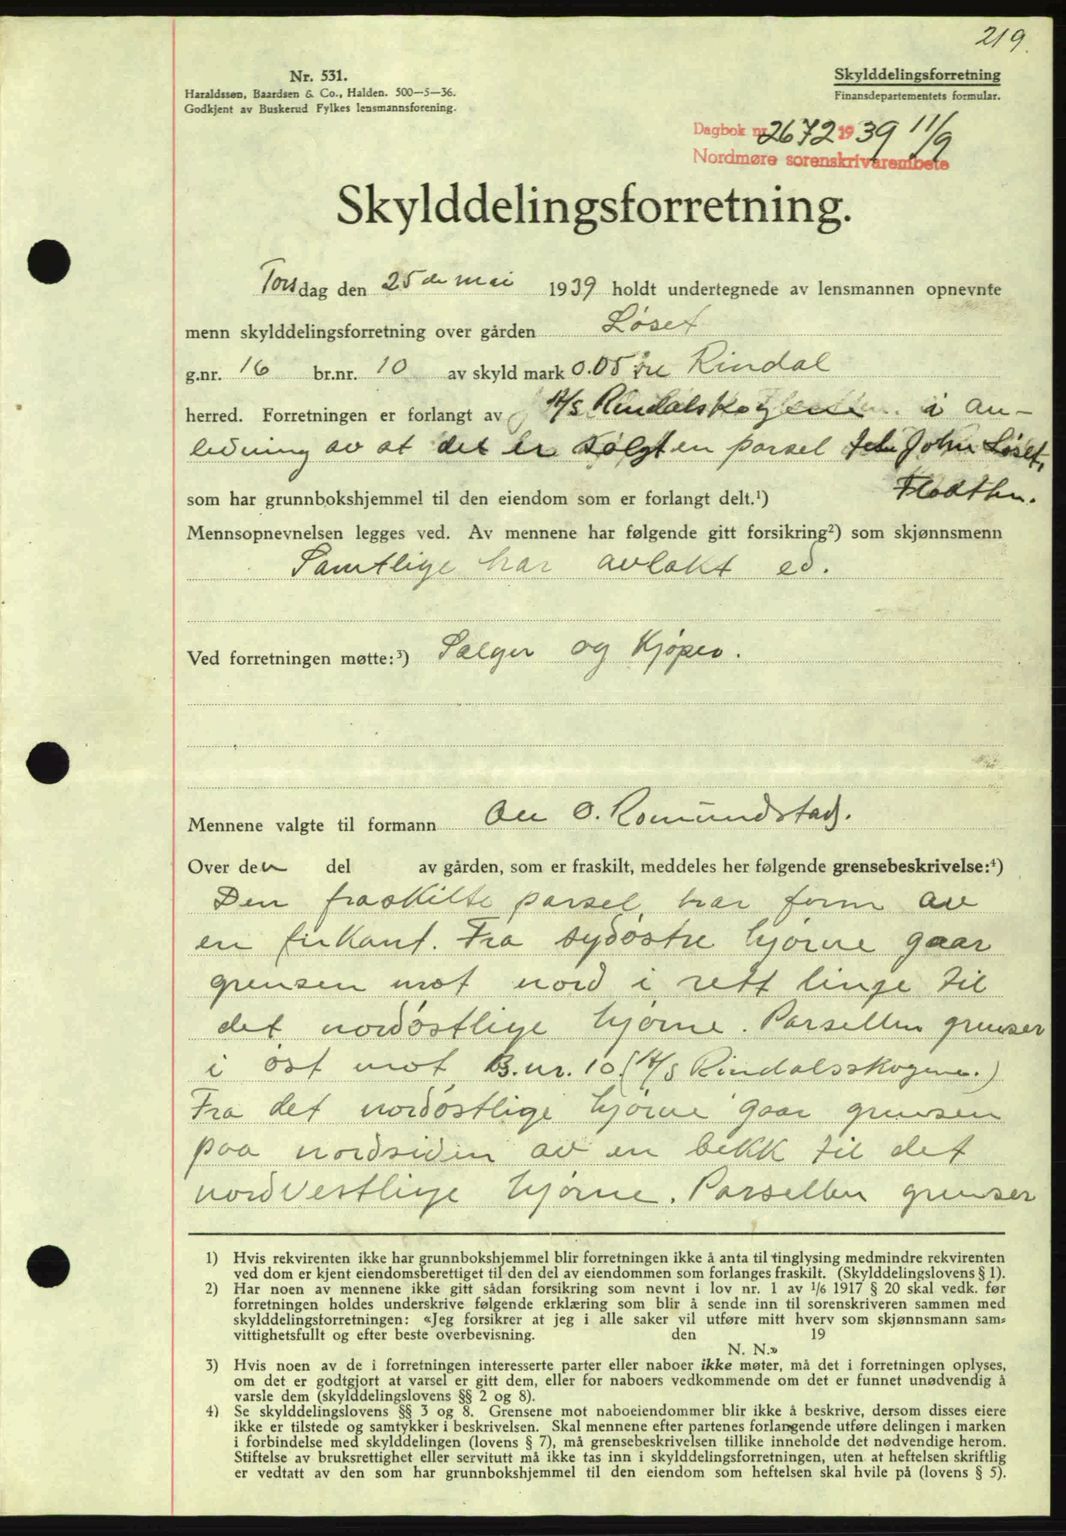 219.
Nr. 531.
Haraldssøn, Baardsen & Co., Halden. 500—5—36.
Godkjent av Buskerud Fylkes lensmannsforening.
Skylddelingsforretning
Finansdepartementets formular.
Dagbok nr. 2672 1939 11/9
Nordmøre sorenskrivarembete
Skylddelingsforretning.
Torsdag den 25de mai 1939 holdt undertegnede av lensmannen opnevnte
menn skylddelingsforretning over gården Løset
g.nr. 16 br.nr. 10 av skyld mark 0.05 øre Rindal
herred. Forretningen er forlangt av A/S Rindalskogene i an-
ledning av at det er solgt en parsel John Løset,
som har grunnbokshjemmel til den eiendom som er forlangt delt.¹)
Mennsopnevnelsen legges ved. Av mennene har følgende gitt forsikring²) som skjønnsmenn
Samtlige har avlakt ed.
Ved forretningen møtte:³) Sælger og Kjøper.
Mennene valgte til formann O. Romundstad.
Over den del av gården, som er fraskilt, meddeles her følgende grensebeskrivelse:⁴)
Den fraskilte parsel har form av
en firkant. Fra sydøstre hjørne gaar
grensen mot nord i rett linje til
det nordøstlige hjørne. Parsellen grenser
i øst mot B.nr. 10 (A/S Rindalsskogene.)
Fra det nordøstlige hjørne gaar grensen
paa nordsiden av en bekk til det
nordvestlige hjørne. Parsellen grenser
1) Hvis rekvirenten ikke har grunnbokshjemmel blir forretningen ikke å anta til tinglysing medmindre rekvirenten
ved dom er kjent eiendomsberettiget til den del av eiendommen som forlanges fraskilt. (Skylddelingslovens § 1).
2) Har noen av mennene ikke gitt sådan forsikring som nevnt i lov nr. 1 av ¹/₆ 1917 § 20 skal vedk. før
forretningen holdes underskrive følgende erklæring som blir å sende inn til sorenskriveren sammen med
skylddelingsforretningen: «Jeg forsikrer at jeg i alle saker vil utføre mitt hverv som skjønnsmann sam-
vittighetsfullt og efter beste overbevisning. den 19
N. N.»
3) Hvis noen av de i forretningen interesserte parter eller naboer ikke møter, må det i forretningen oplyses,
om det er godtgjort at varsel er gitt dem, eller for naboers vedkommende om det er funnet unødvendig å
varsle dem (skylddelingslovens §§ 2 og 8).
4) Se skylddelingslovens §§ 3 og 8. Grensene mot naboeiendommer blir ikke å beskrive, dersom disses eiere
ikke er tilstede og samtykker i beskrivelsen. Skal mennene efter partenes forlangende utføre delingen i marken
i forbindelse med skylddelingen (lovens § 7), må grensebeskrivelsen tillike inneholde det nødvendige herom.
Stiftelse av bruksrettighet eller servitutt må ikke tas inn i skylddelingsforretningen, uten at heftelsen skriftlig
er vedtatt av den som har grunnbokshjemmel til den eiendom som heftelsen skal hvile på (lovens § 5).